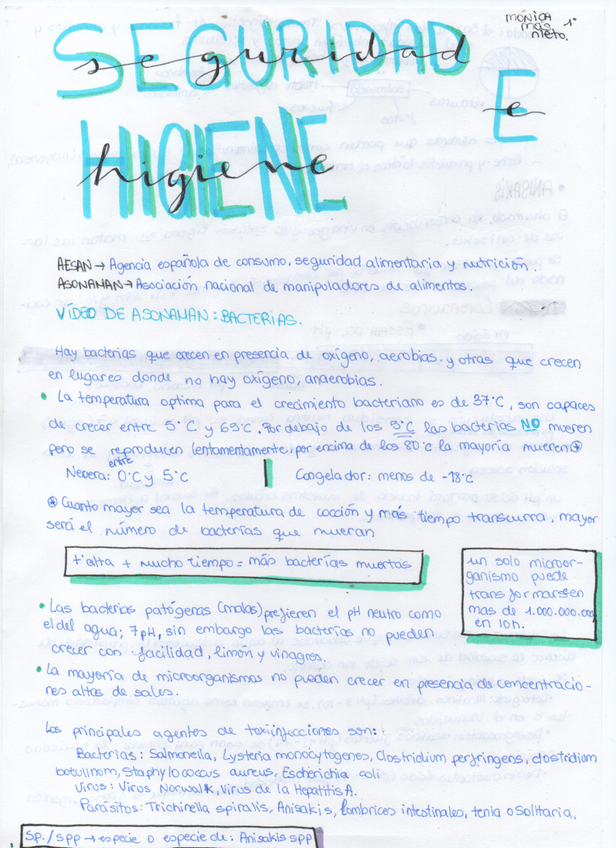 Mónica 1º
mas
nieto.
SEGURIDAD
seguridad
E
e
HIGIENE
higiene
AESAN → Agencia española de consumo, seguridad alimentaria y nutrición.
ASONAMAN → Asociación nacional de manipuladores de alimentos.
VÍDEO DE ASONAMAN: BACTERIAS.
Hay bacterias que crecen en presencia de oxígeno, aerobias. y otras que crecen
en lugares donde no hay oxígeno, anaerobias.
• La temperatura optima para el crecimiento bacteriano es de 37°C, son capaces
de crecer entre 5°C y 65°C. Por debajo de los 5°C las bacterias NO mueren
pero se reproducen lentamentamente, por encima de los 80°c la mayoría mueren ⊛
Nevera: entre 0°C y 5°C
Congelador: menos de -18°C
⊛ Cuanto mayor sea la temperatura de cocción y más tiempo transcurra, mayor
será el número de bacterias que mueran
tªalta + mucho tiempo = más bacterias muertas
un solo microor-
ganismo puede
transformarse en
mas de 1.000.000.000
en 10h.
• Las bacterias patógenas (malas) prefieren el pH neutro como
el del agua; 7pH, sin embargo las bacterias no pueden
crecer con facilidad, limón y vinagres.
• La mayoría de microorganismos no pueden crecer en presencia de concentracio-
nes altas de sales.
Los principales agentes de toxiinfecciones son:
Bacterias: Salmonella, Lysteria monocytogenes, Clostridium perfringens, clostridium
botulinom, Staphylococcus aureus, Escherichia coli
Virus: Virus, Norwalk, Virus de la Hepatitis A.
Parásitos: Trichinella spiralis, Anisakis, Lombrices intestinales, tenia o Solitaria.
Sp./spp → especie o especie de: Anisakis spp